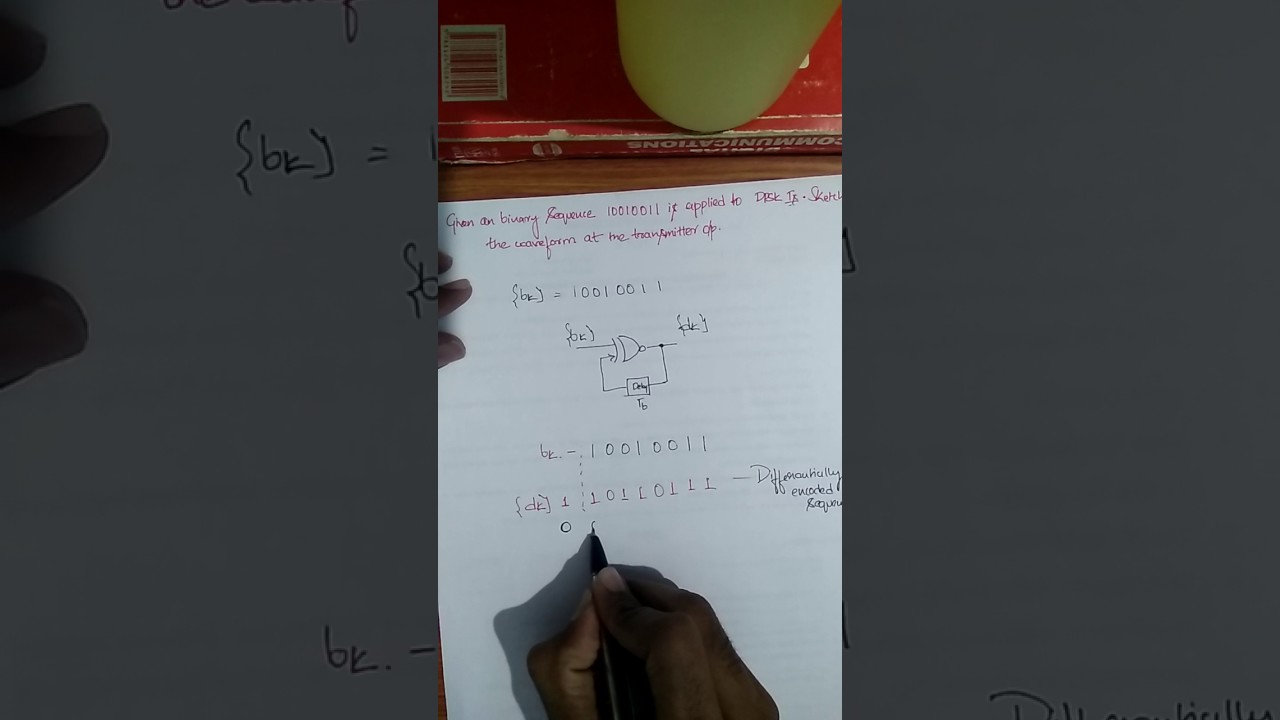 COMMUNICATIONS
Given an binary sequence 10010011 is applied to DPSK Tx. Sketch
the waveform at the transmitter o/p.
{bk} = 10010011
{bk} {dk}
Delay
Tb
bk. - 1 0 0 1 0 0 1 1
{dk} 1 1 0 1 1 0 1 1 1 — Differentially
encoded
0
{bk} =
bk. -
Differentially